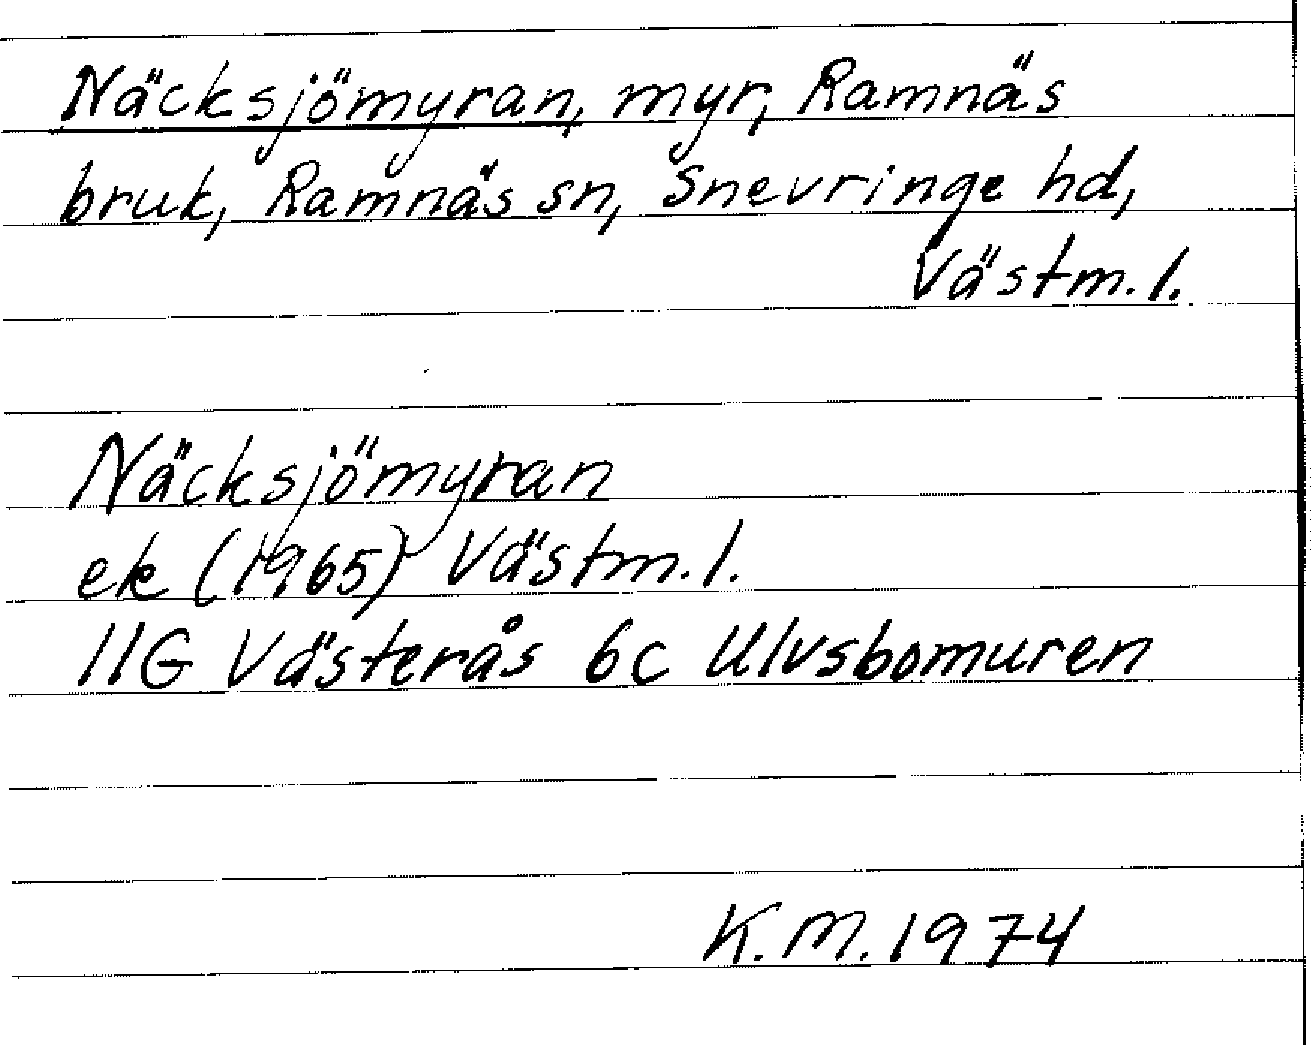 Näcksjömyran, myr, Ramnäs
bruk, Ramnäs sn, Snevringe hd,
Västm. l.
Näcksjömyran
ek (1965) Västm. l.
11G Västerås 6c Ulvsbomuren
K.M. 1974